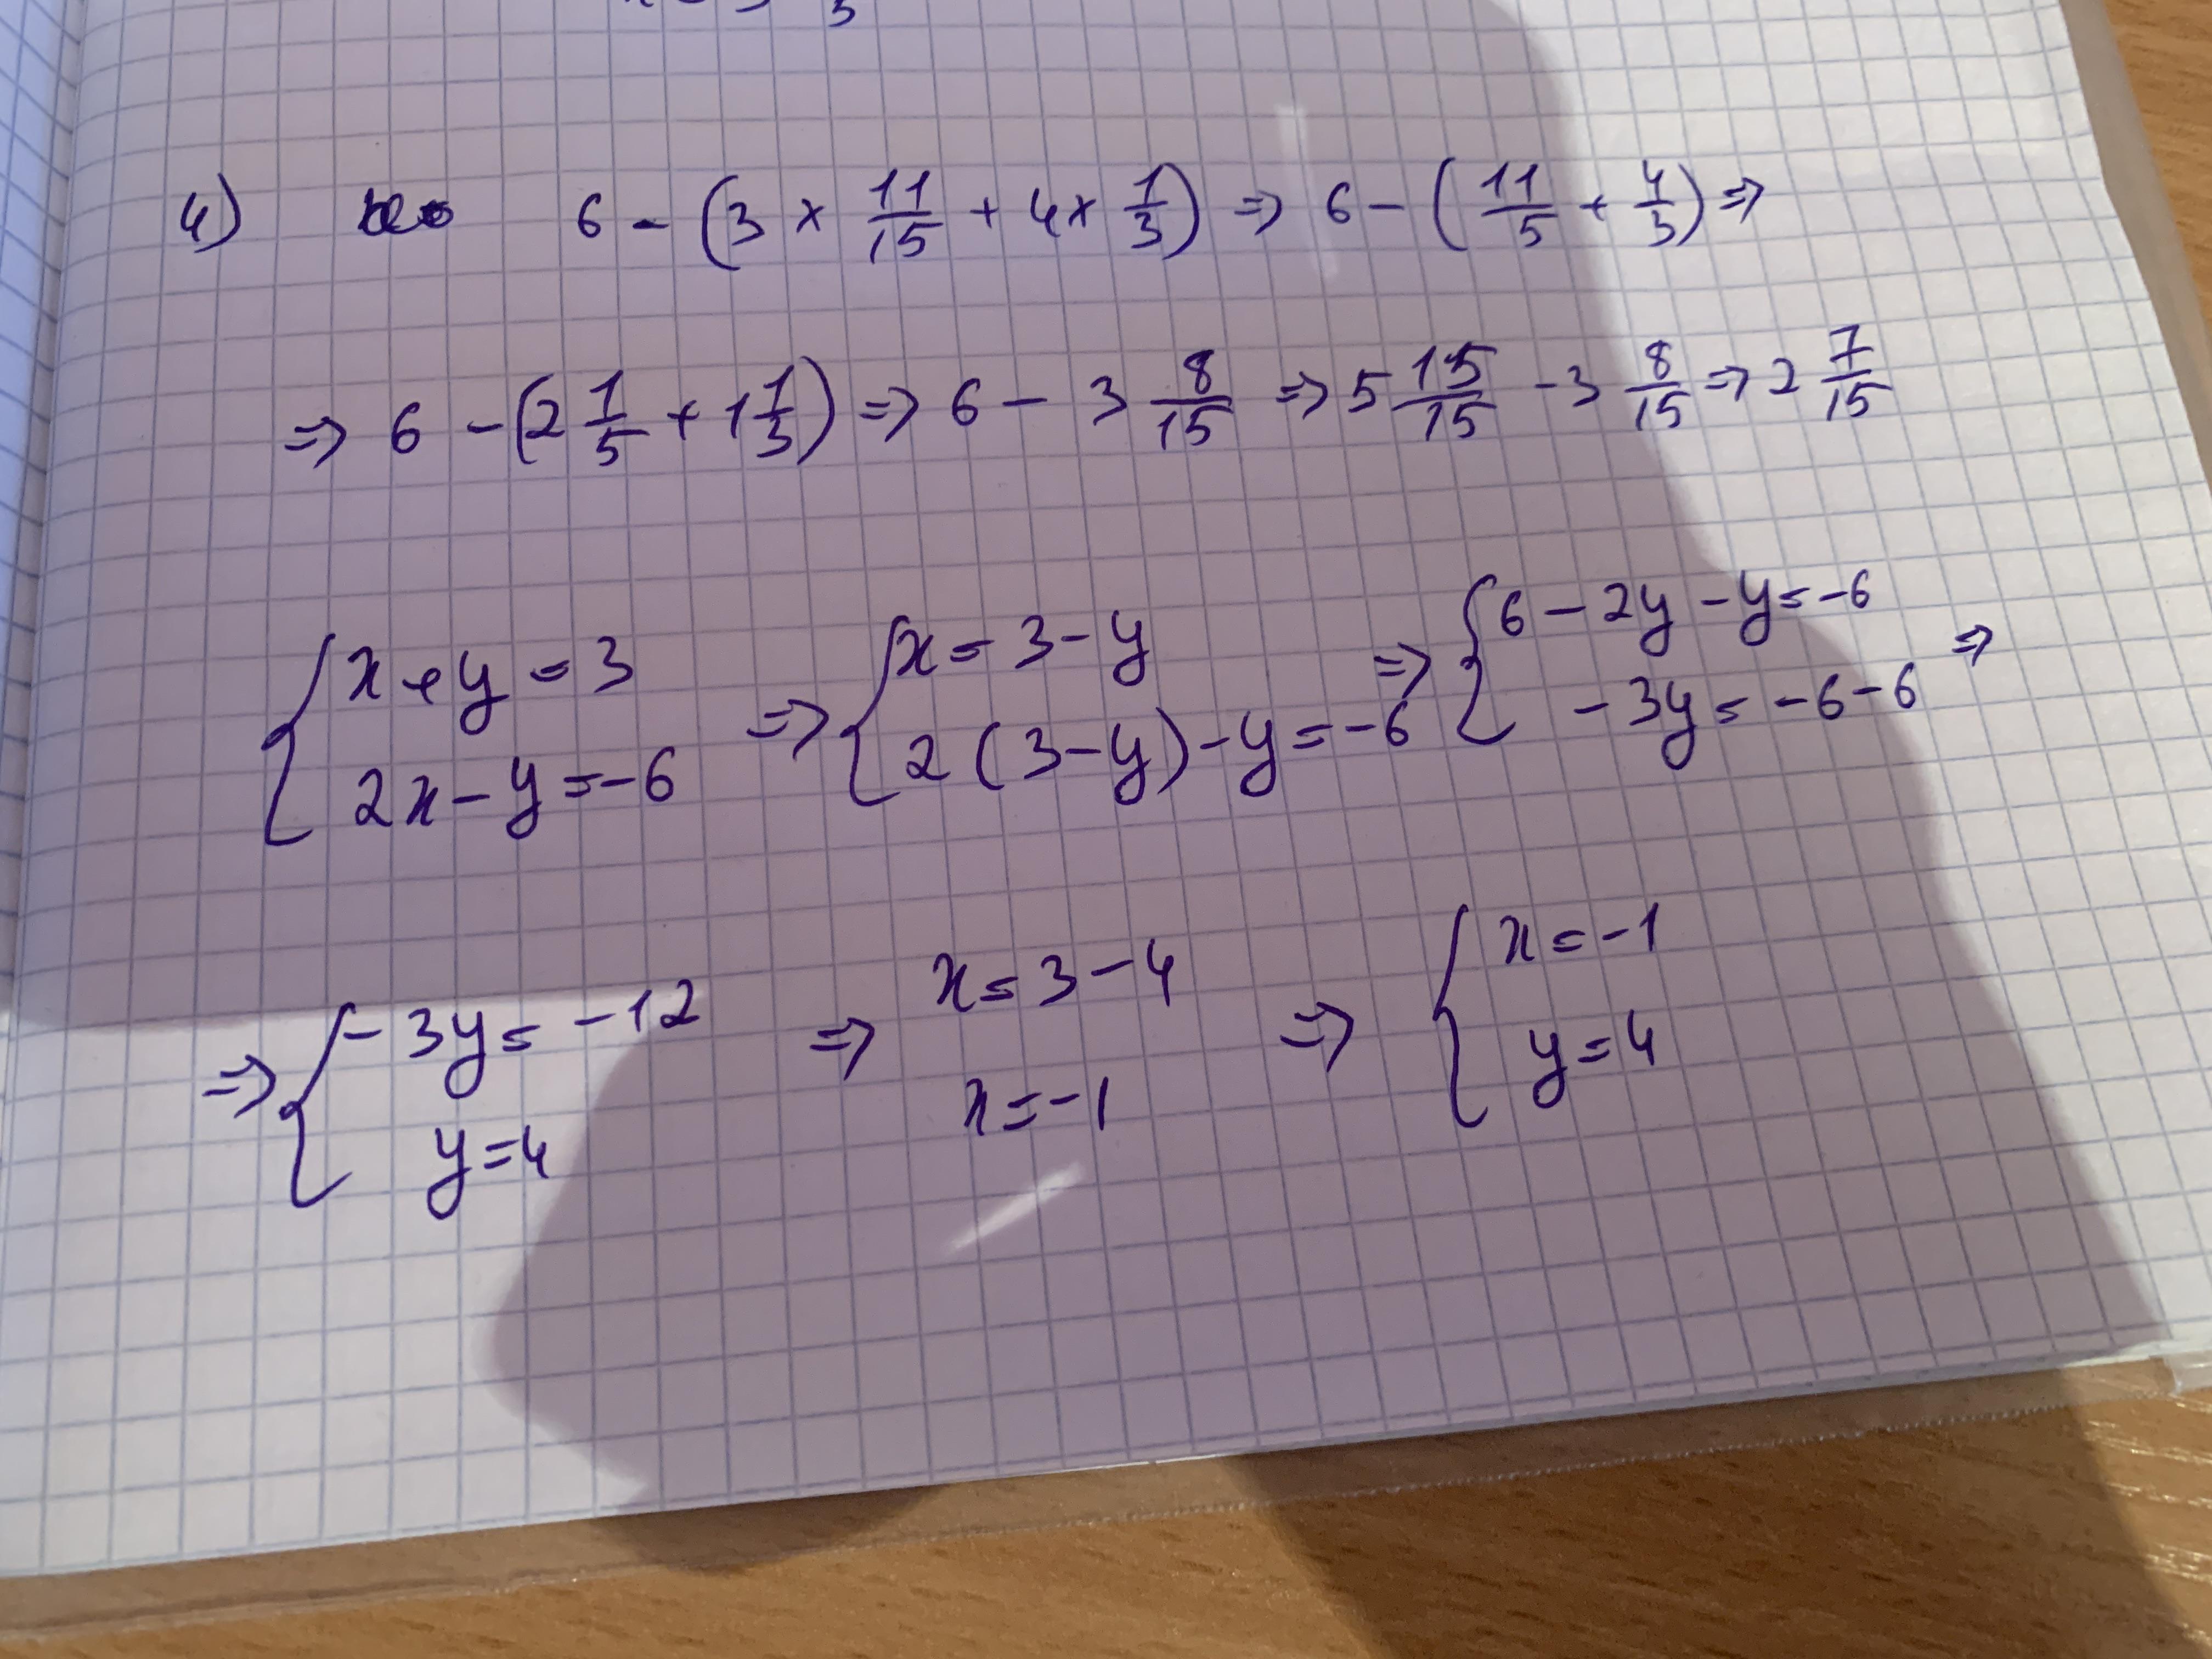 4) 6 - (3 × 11/15 + 4 × 1/3) => 6 - (11/5 + 4/3) =>
=> 6 - (2 1/5 + 1 1/3) => 6 - 3 8/15 => 5 15/15 - 3 8/15 => 2 7/15
{ x + y = 3 => { x = 3 - y => { 6 - 2y - y = -6 =>
2x - y = -6 2(3 - y) - y = -6 - 3y = -6 - 6
=> { - 3y = -12 => x = 3 - 4 => { x = -1
y = 4 x = -1 y = 4